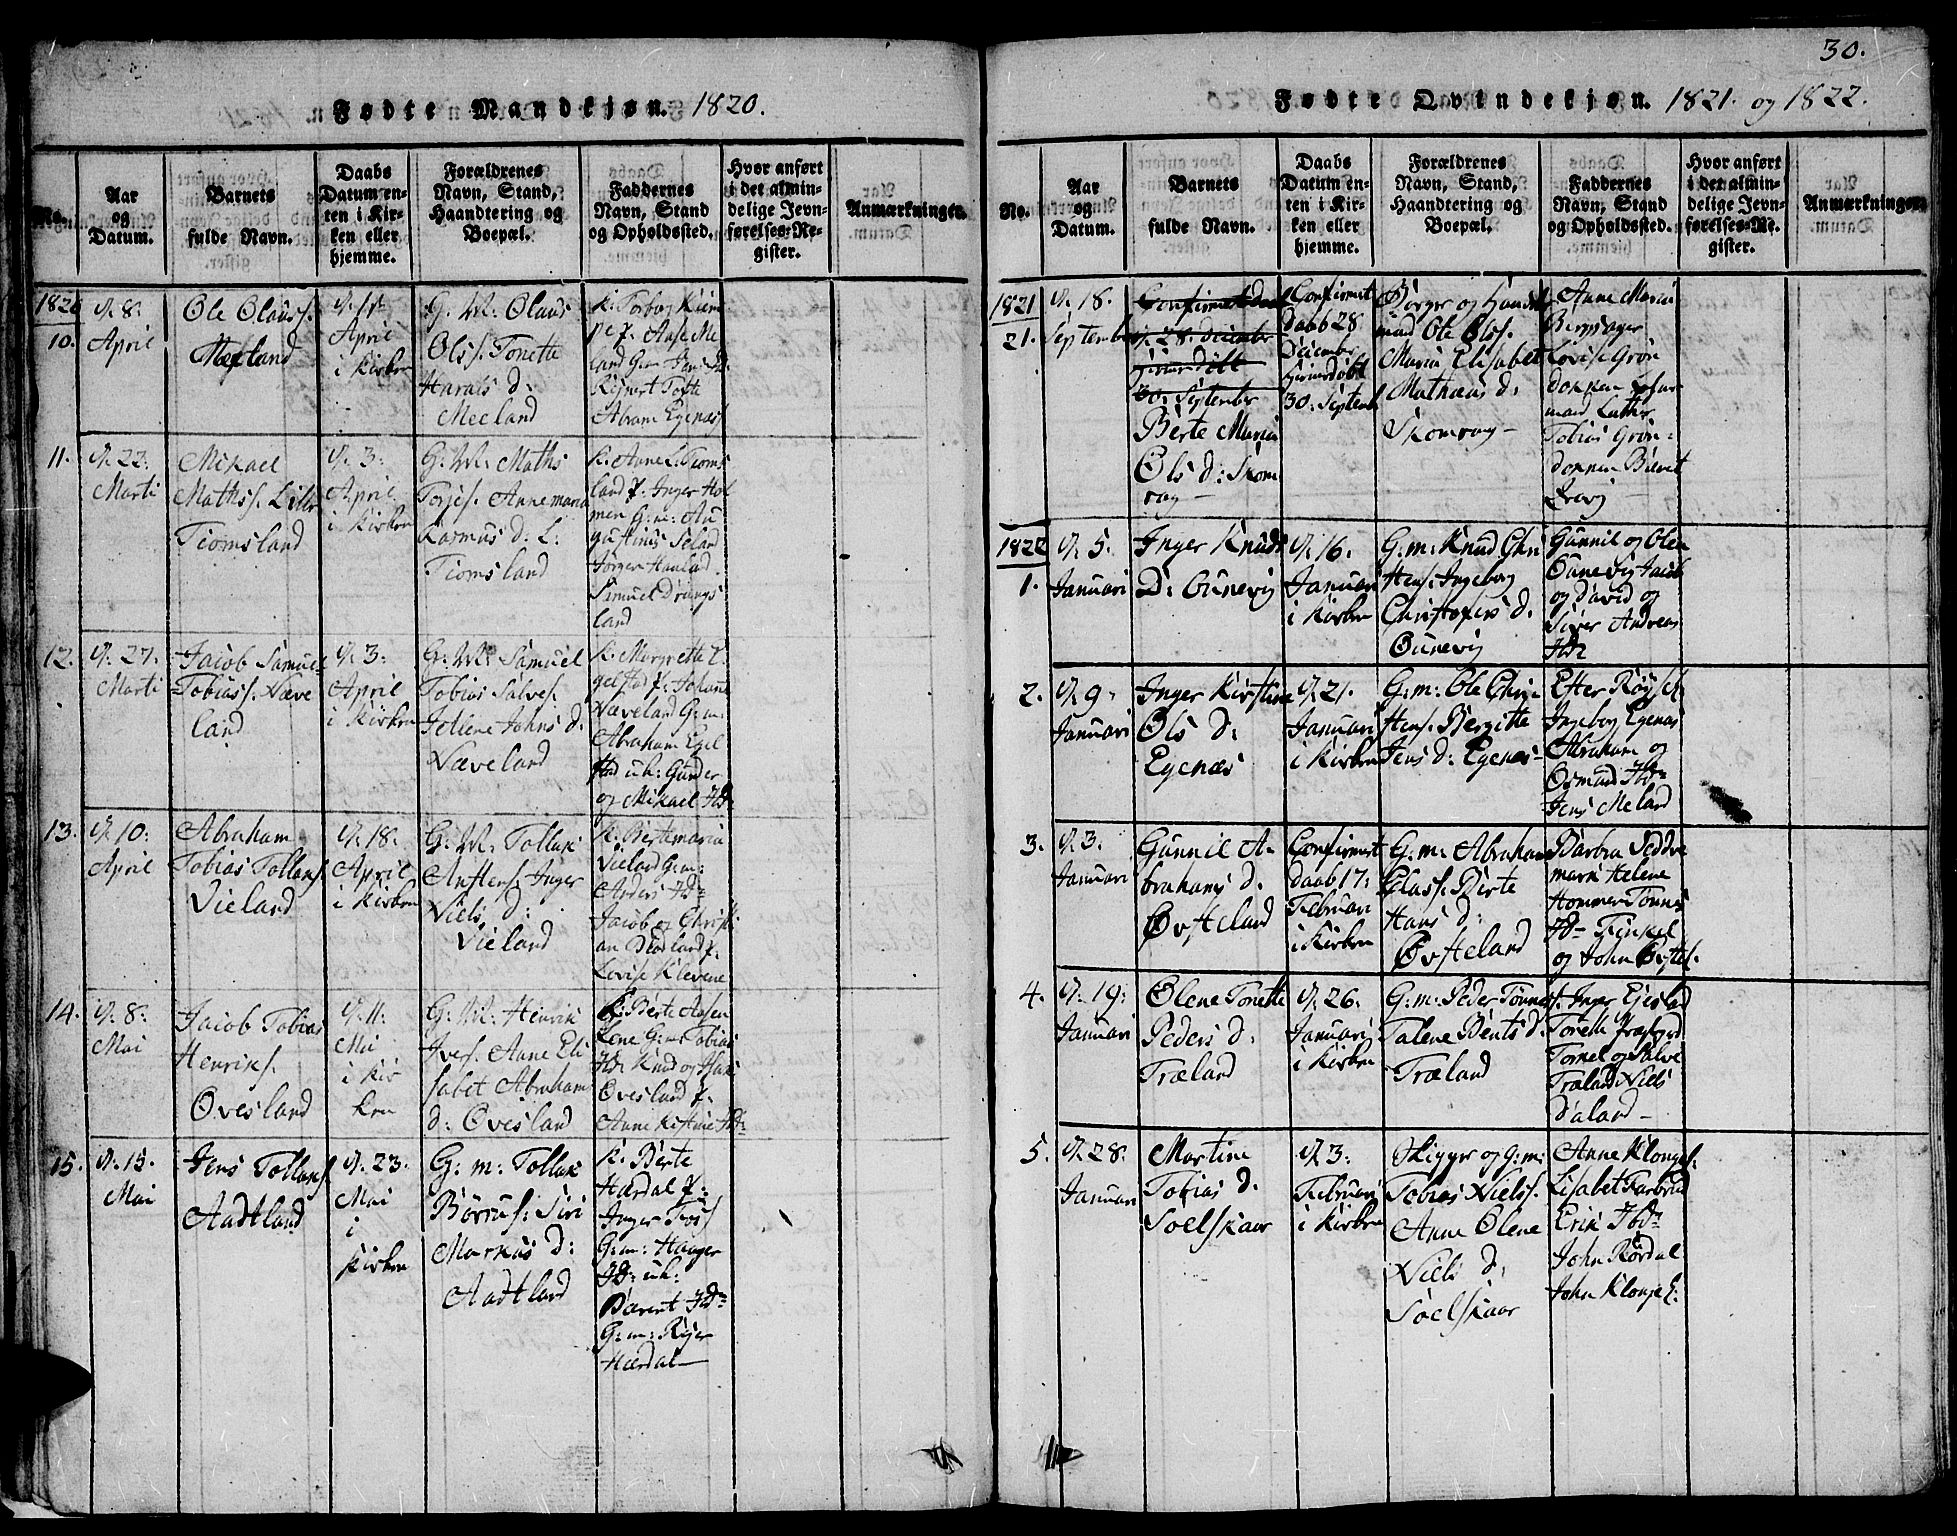 30.
Fødte Mandkjøn. 1820.
No.
Aar
og
Datum.
Barnets
fulde Navn.
Daabs
Datum en-
ten i Kir-
ken eller
hjemme.
Forældrenes
Navn, Stand,
Haandtering og
Boepæl.
Faddernes
Navn, Stand
og Opholdssted.
Hvor anført
i det almin-
delige Jevn-
førelses-Re-
gister.
Anmærkninger.
1820
10.
d. 8.
April
Ole Olaus.
Meeland
d. 1st
April
i Kirken
G. M. Olaus
Ols. Tonette
Harals d:
Meeland
Abram Egenæs
11.
d. 22.
Marti
Mikael
Maths. Lille
Tiomsland
d. 3.
April
i Kirken
G. M: Maths
Torjes. Anne maria
Rasmus d. L:
Tiomsland
K. Anne L. Tioms
land P. Inger Hol
men G:m: Au
gustinus Seland
Jørger Haaland
Simuel Drangs
land
12.
d. 27.
Marti
Jacob Samuel
Tobiass. Næve
land
d. 3.
April
i Kirken
G. M: Samuel
Tobias Salves.
Jollene Johns d.
Næveland
K. Margrette E.
gelstad P. Johane
Næveland G:m.
Abraham Egel
stad uh: Gunder
og Mikael Ibd
13.
d. 10:
April
Abraham
Tobias Tollaks.
Vieland
d. 18.
April
i Kirken
G. M. Tollak
Anstens. Inger
Niels d:
Vieland
K. Bertemaria
Vieland G:m:
Anders Ibd
Jacob og Christi
an Diodland P.
Lovise Klevene
14.
d. 8.
Mai
Jacob Tobias
Henriks.
Øvesland
d. 11.
Mai
i Kir
ken
G. M: Henrik
Ivers. Anne Eli
sabet Abraham
d: Øvesland
K. Berte Aasen
Lene G:m: Tobias
Ibd. Knud og Isak
Øvesland P.
Anne Kistine Ibd
15.
d. 15.
Mai
Jens Tollaks.
Aadtland
d. 23.
Mai
i
Kirken
G: m: Tollak
Børrus. Siri
Markus d:
Aadtland
K. Berte
Hærdal P:
Inger Foss
G:m: Haager
Ibd: uh:
Barent Ibd
G:m: Reier
Hærdal
Fødte Qvindekjøn. 1821. og 1822.
No.
Aar
og
Datum.
Barnets
fulde Navn.
Daabs
Datum en-
ten i Kir-
ken eller
hjemme.
Forældrenes
Navn, Stand,
Haandtering og
Boepæl.
Faddernes
Navn, Stand
og Opholdssted.
Hvor anført
i det almin-
delige Jevn-
førelses-Re-
gister.
Anmærkninger.
1821
21.
d. 18.
September
Confirmet Daab
d. 28. Decembr
hjemmedøbt
30. September
Berte Maria
Ols d: Skom
rag
Confirmert
daab 28
December
hjemmedøbt
30. Septemb
Borger og Handels
mand Ole Ols.
Maria Elisabet
Mathæus d:
Skomrag
Anne Maria
Bergsager
Lovise Grøn
dokken
Tobias Grøn-
dokken
1822
1.
d. 5.
Januari
Inger Knuds
D: Ounevig
d. 16.
Januari
i Kirken
G:m: Knud Chri
stens. Ingeborg
Christofers d.
Ounevig
Gunnil og Olea
Ounevig Jacob
og David og
Siver Andreas
Ibd
2.
d. 9.
Januari
Inger Kirstine
Ols d:
Egenæs
d. 21.
Januari
i Kirken
G:m: Ole Chri-
stens. Bergitte
Jens d: Egenæs
Ester Røyset
Ingeborg Egenæs
Abraham og
Osmund Ibd
Jens Meland
3.
d. 3.
Januari
Gunnil A-
brahams d.
Øvsteland
Confirmert
daab 17:
Februari
i Kirken
G. m: Abraham
Elias. Berte
Hans d:
Øvsteland
Barbra Sedde
mark Helene
Hommen Tønnes
Ibd Tinkel
og John Øvstel.
4.
d. 19:
Januari
Olene Tonette
Peders d:
Træland
d. 26.
Januari
i Kirken
G: m: Peder Tønnes.
Talene Bents d.
Træland
Inger Eiesland
Tonette Præstgrd
Tomel og Salve
Træland Niels
Daland
5.
d. 28.
Januari
Martine
Tobias d.
Soelskaar
d. 3:
Februari
i Kirken
Skipper og G:m:
Tobias Niels.
Anne Olene
Niels d:
Soelskaar
Anne Klongel.
Lisabet Farbrud
Erik Ibd
John Rørdal
John Klongel: